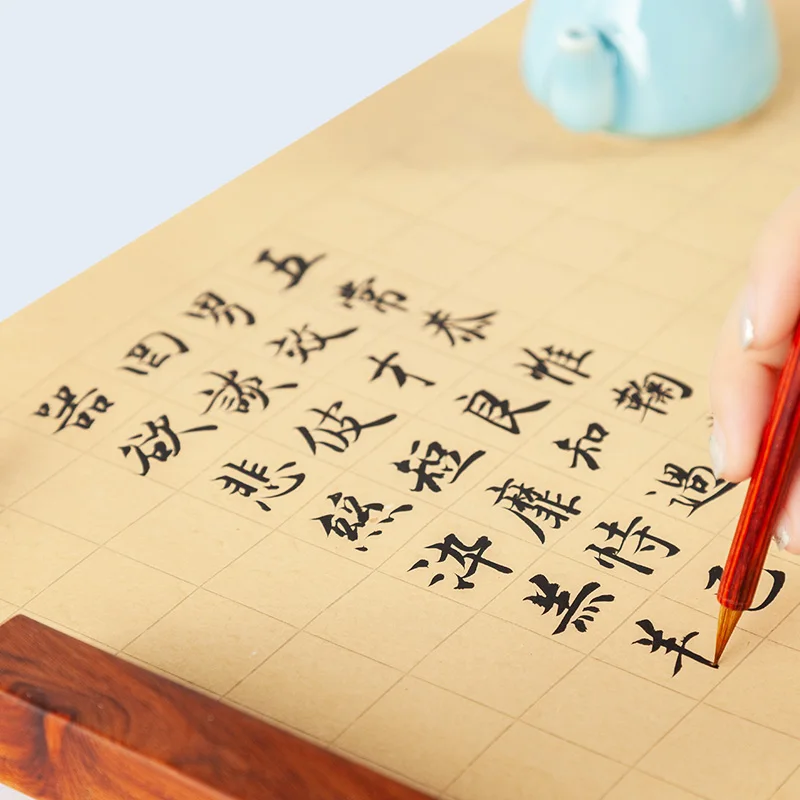 五常恭惟鞠
男效才良知過
罔談彼短靡恃己
器欲悲絲染羔羊